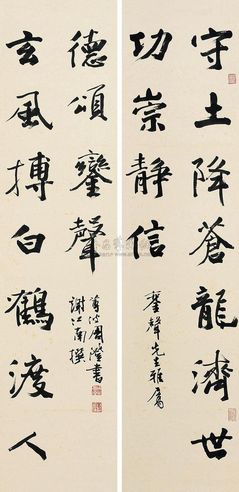 守土降蒼龍濟世
功崇靜信
鑾聲先生雅屬
玄風搏白鶴渡人
德頌鑾聲
蓴波周澄書
謝江南撰